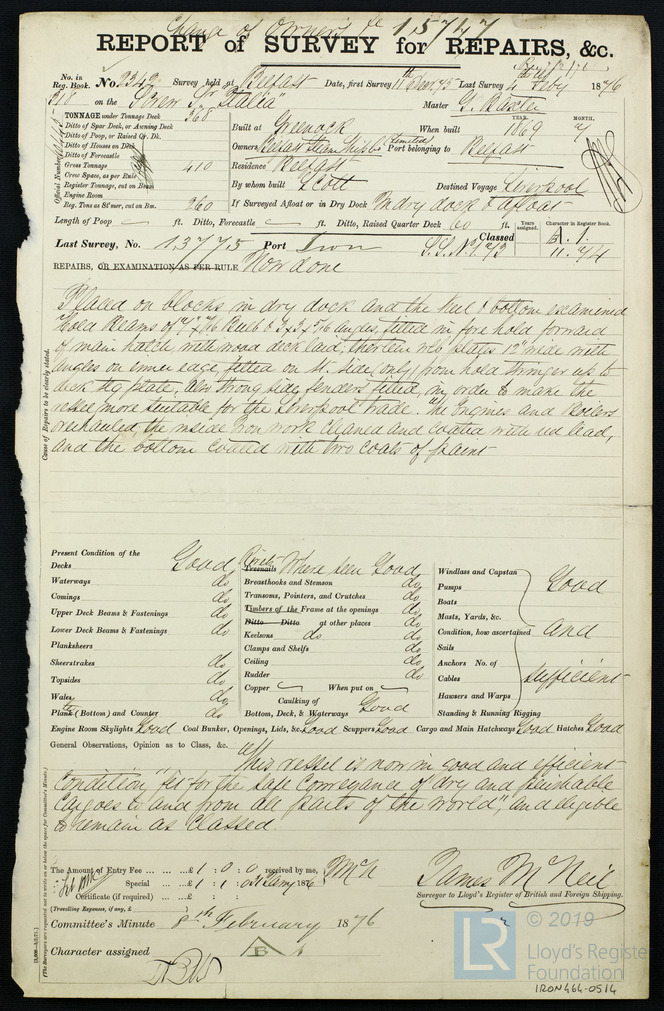 Change of Owners
15747
REPORT of SURVEY for REPAIRS, &c.
No. in Reg. Book. No. 2342 Survey held at Belfast Date, first Survey 11th Last Survey 4 Feby 1876
318 on the Screw Sr "Italia" Master G.
TONNAGE under Tonnage Deck 368
Ditto of Spar Deck, or Awning Deck
Ditto of Poop, or Raised Qr. Dk.
Ditto of Houses on Deck
Ditto of Forecastle
Gross Tonnage 410
Crew Space, as per Rule
Register Tonnage, cut on Beam
Engine Room
Reg. Tons as St'mer, cut on Bm. 260
Official Number
Built at Greenock When built YEAR. 1869 MONTH. 7
Owners Belfast Steam Ship Co Limited Port belonging to Belfast
Residence Belfast
By whom built Scott Destined Voyage Liverpool
If Surveyed Afloat or in Dry Dock In dry dock & afloat
Length of Poop ft. Ditto, Forecastle ft. Ditto, Raised Quarter Deck 60 ft.
Classed Years assigned. Character in Register Book.
Last Survey, No. 13775 Port Iron
11.74
REPAIRS, OR EXAMINATION AS PER RULE Now done
Cause of Repairs to be clearly stated.
Placed on blocks in dry dock and the Keel & bottom examined
Hold Beams of Bulb & angles, fitted in fore hold forward
of main hatch, with wood deck laid, therein web plates 12" wide with
angles on inner edge, fitted on St. side (only) from hold stringer up to
deck tie plate, also strong side fenders fitted, in order to make the
vessel more suitable for the Liverpool trade. The Engines and Boilers
overhauled the inside iron work cleaned and coated with red lead,
and the bottom coated with two coats of paint
Present Condition of the
Decks Good
Waterways do
Comings do
Upper Deck Beams & Fastenings do
Lower Deck Beams & Fastenings do
Planksheers
Sheerstrakes do
Topsides do
Wales do
Plank (Bottom) and Counter do
Rivets Treenails Where seen Good
Breasthooks and Stemson do
Transoms, Pointers, and Crutches do
Timbers of the Frame at the openings do
Ditto Ditto at other places do
Keelsons do do
Clamps and Shelfs do
Ceiling do
Rudder do
Copper When put on
Caulking of
Bottom, Deck, & Waterways Good
Windlass and Capstan
Pumps Good
Boats
Masts, Yards, &c.
Condition, how ascertained and
Sails
Anchors No. of
Cables sufficient
Hawsers and Warps
Standing & Running Rigging
Engine Room Skylights Good Coal Bunker, Openings, Lids, &c. Good Scuppers Good Cargo and Main Hatchways Good Hatches Good
General Observations, Opinion as to Class, &c.
This vessel is now in good and efficient
condition, "fit for the safe conveyance of dry and perishable
Cargoes to and from all parts of the world", and eligible
to remain as Classed.
The Amount of Entry Fee £1 : 0 : 0 received by me,
Special £1 : 1 : 0 1876
Certificate (if required)
(Travelling Expenses, if any, £
James McNeil
Surveyor to Lloyd's Register of British and Foreign Shipping.
Committee's Minute 8th February 1876
Character assigned
(The Surveyors are requested not to write on or below the space for Committee's Minute.)
LR
© 2019
Lloyd's Register
Foundation
IRON464-0514